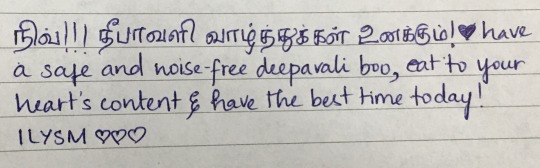 நிவ்!!! தீபாவளி வாழ்த்துக்கள் உனக்கும்!♥ have
a safe and noise-free deepavali boo, eat to your
heart's content & have the best time today!
ILYSM ♡♡♡